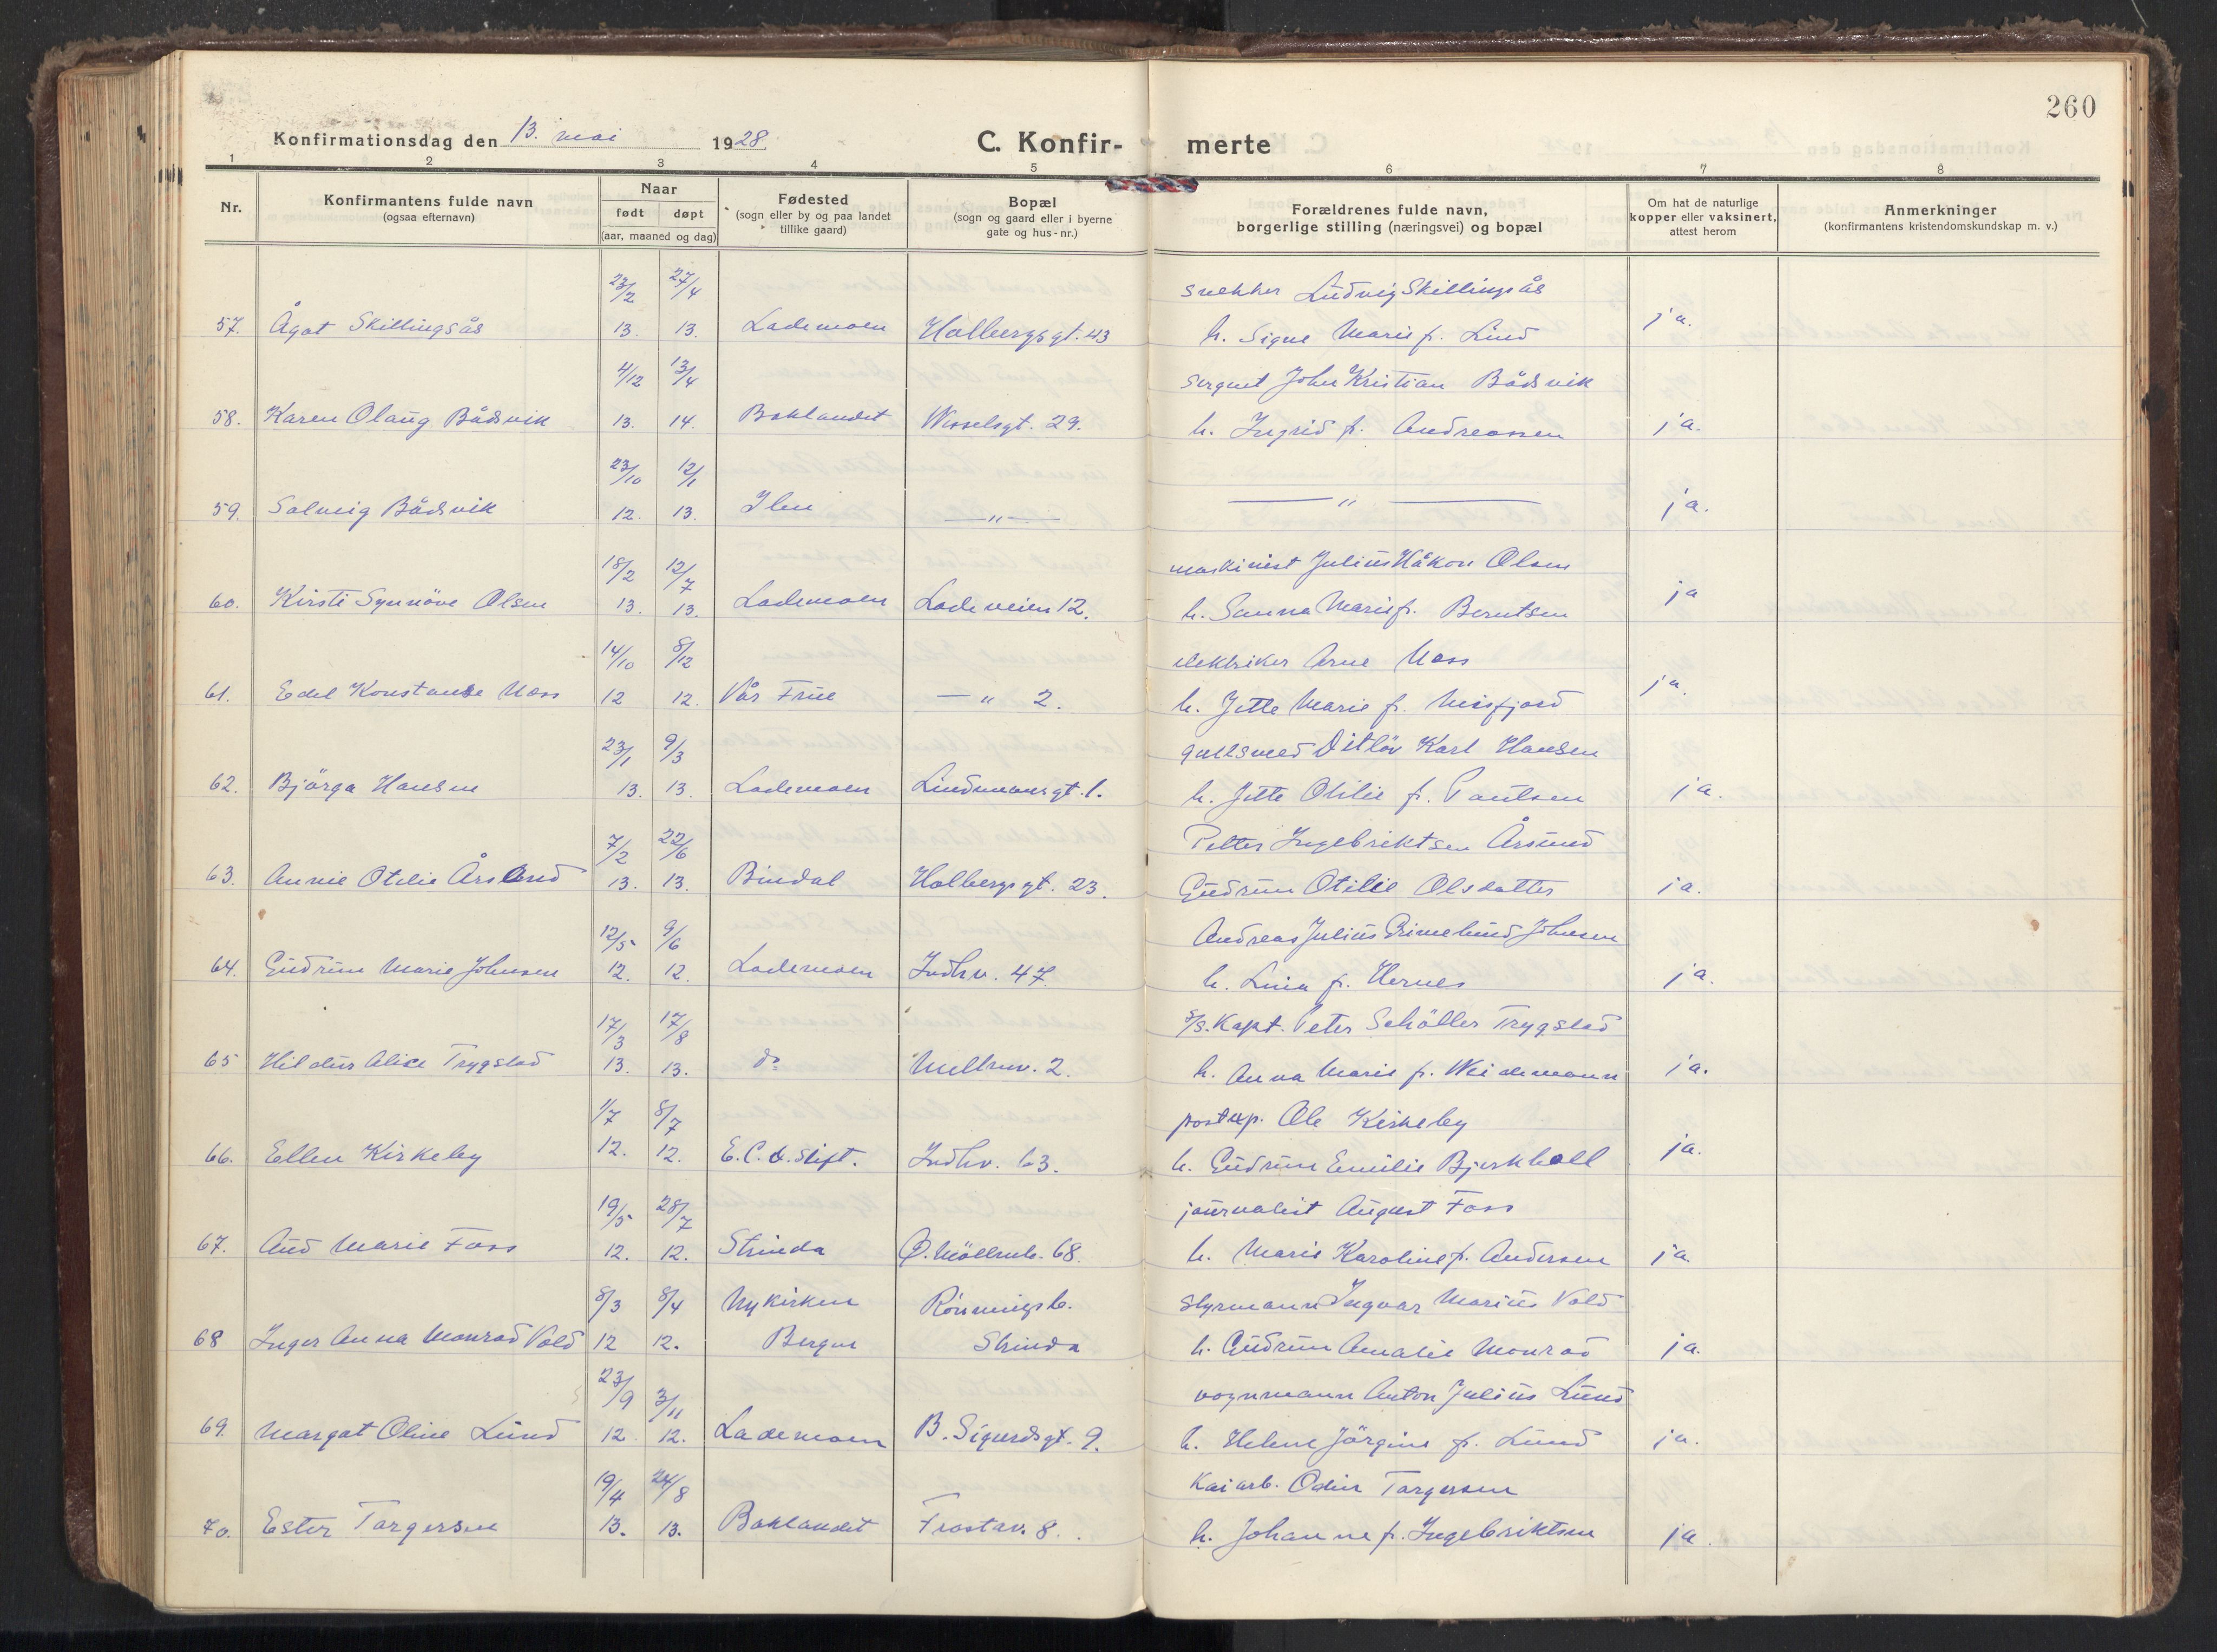 260
Konfirmationsdag den 13. mai 1928
C. Konfir- merte
1 2 3 4 5 6 7 8
Nr.
Konfirmantens fulde navn
(ogsaa efternavn)
Naar
født døpt
(aar, maaned og dag)
Fødested
(sogn eller by og paa landet
tillike gaard)
Bopæl
(sogn og gaard eller i byerne
gate og hus-nr.)
Forældrenes fulde navn,
borgerlige stilling (næringsvei) og bopæl
Om hat de naturlige
kopper eller vaksinert,
attest herom
Anmerkninger
(konfirmantens kristendomskundskap m. v.)
23/2 27/4 snekker Ludvig Skillingsås
57. Ågot Skillingsås 13. 13. Lademoen Holbergsgt. 43 h. Signe Marie f. Lund ja.
4/12 13/4 sergent John Kristian Bådsvik
58. Karen Olaug Bådsvik 13. 14. Baklandet Wesselsgt. 29. h. Ingrid f. Andreassen ja.
23/10 12/1
59. Solveig Bådsvik 12. 13. Ilen —"— —"— ja.
18/2 12/7 maskinist Julius Håkon Olsen
60. Kirsti Synnöve Olsen 13. 13. Lademoen Ladeveien 12. h. Sanna Marie f. Berntsen ja
14/10 8/12 elektriker Arne Moss
61. Edel Konstanse Moss 12 12. Vår Frue —" 2. h. Jette Marie f. Misfjord ja.
23/1 9/3 gullsmed Ditlöv Karl Hansen
62. Björga Hansen 13. 13. Lademoen Lindemansgt. 1. h. Jette Otilie f. Paulsen ja.
7/2 22/6 Petter Ingebriktsen Årsund
63. Annie Otilie Årslund 13. 13. Bindal Holbergsgt. 23. Gudrun Otilie Olsdatter ja.
12/5 9/6 Andreas Julius Grimelund Johnsen
64. Gudrun Marie Johnsen 12. 12. Lademoen Indhv. 47 h. Lina f. Hernes ja.
17/3 17/8 s/s. Kapt. Peter Schöller Trygstad
65 Hildur Alice Trygstad 13. 13. do Mellomv. 2. h. Anna Marie f. Weidemann ja.
1/7 8/7 postexp. Ole Kirkeby
66. Ellen Kirkeby 12. 12. E. C. D. stift. Indhv. 63. h. Gudrun Emilie Bjerkholl ja.
19/5 28/7 journalist August Foss
67. Aud Marie Foss 12. 12. Strinda Ø. Möllenb. 68. h. Marie Karoline f. Andersen ja.
8/3 8/4 Nykirken Rönningsb. styrmann Ingvar Marius Vold
68 Inger Anna Monrad Vold 12 12. Bergen Strinda h. Gudrun Amalie Monrad ja.
23/9 3/11 vognmann Anton Julius Lund
69. Margot Oline Lund 12. 12. Lademoen B. Sigurdsgt. 9. h. Helene Jörgine f. Lund ja.
19/4 24/8 Kaiarb. Odin Torgersen
70. Ester Torgersen 13. 13. Baklandet Frostav. 8. h. Johanne f. Ingebriktsen ja.